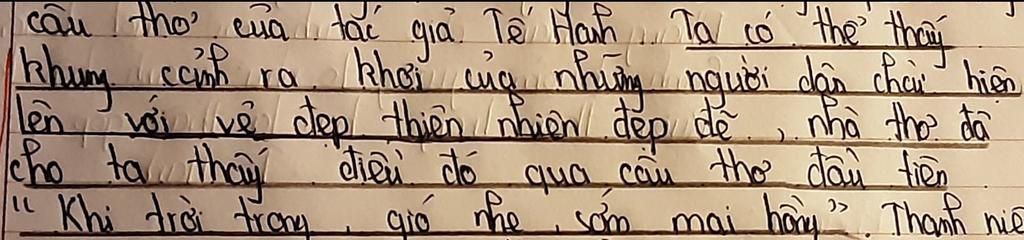 câu thơ của tác giả Tế Hanh. Ta có thể thấy
khung cảnh ra khơi của những người dân chài hiện
lên với vẻ đẹp thiên nhiên đẹp đẽ, nhà thơ đã
cho ta thấy điều đó qua câu thơ đầu tiên
"Khi trời trong, gió nhẹ, sớm mai hồng". Thanh niê